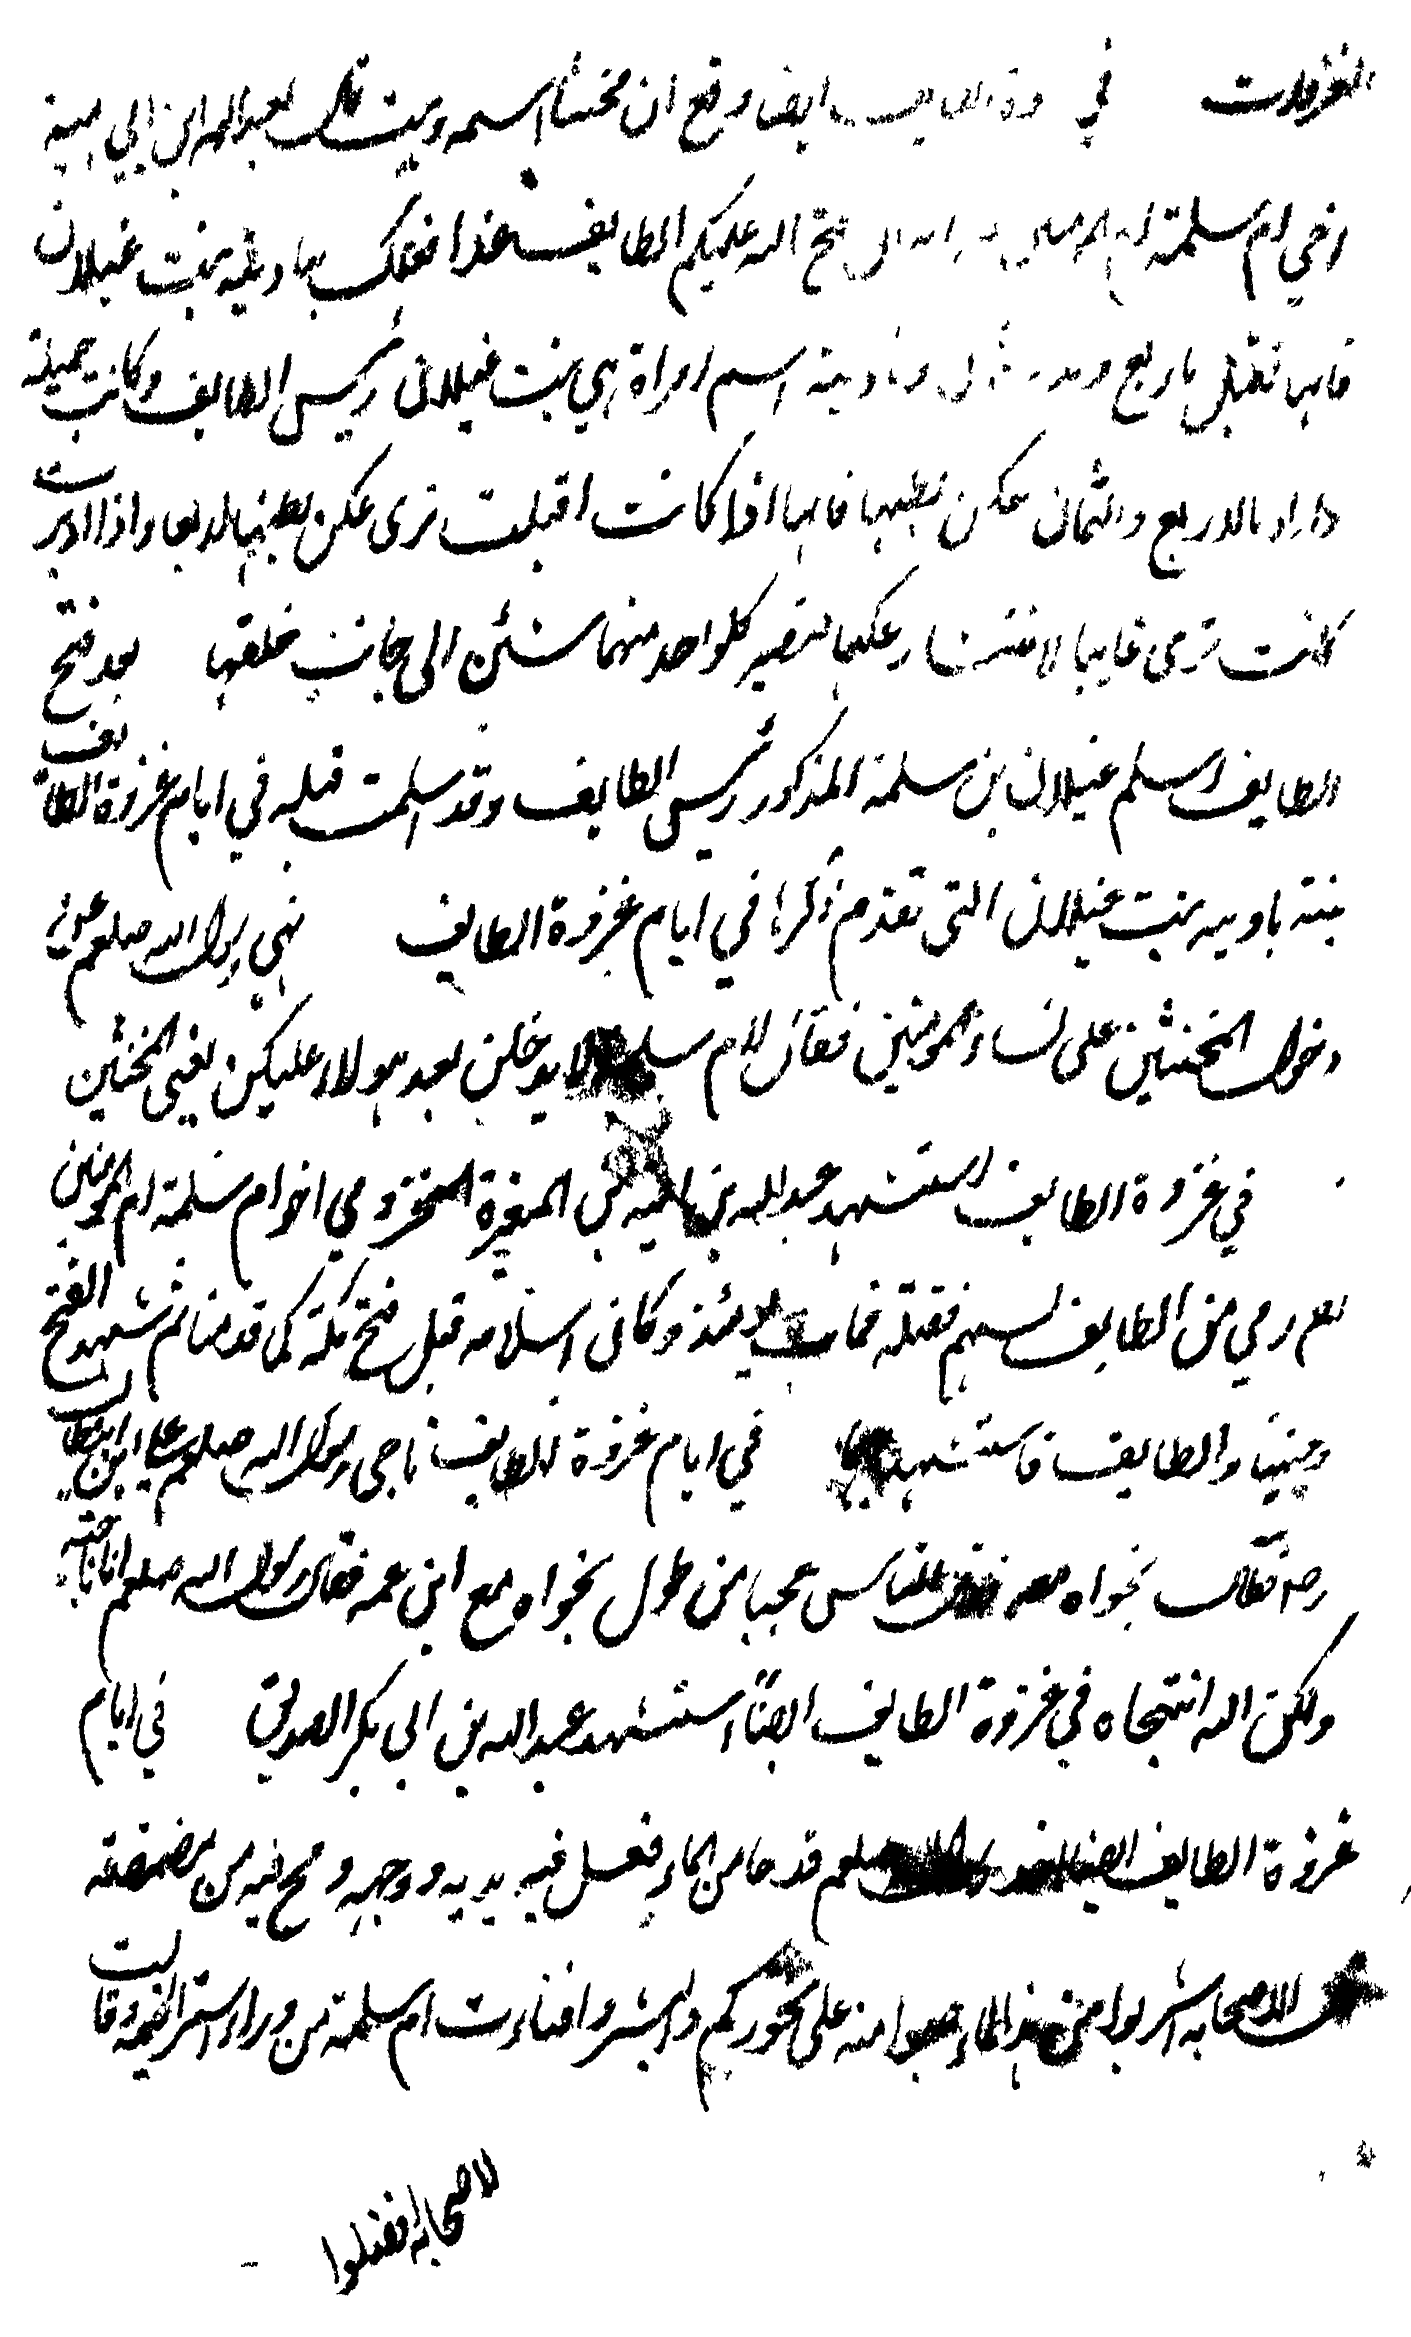 الغزوات في غزوة الطايف ايضا وقع ان مخنثا اسمه وهيت قال لعبدالله ابن ابي امية
اخي ام سلمة ام المومنين ان فتح الله عليكم الطايف غدا فعليك ببادية بنت غيلان
فانها تقبل باربع وتدبر بثمان وبادية اسم امراة هي بنت غيلان رئيس الطايف وكانت جميلة
واراد بالاربع والثمان عكن بطنها فانها اذا كانت اقبلت ترى عكن بطنها اربعا واذا ادبرت
كانت ترى ثمانيا لانتشار عكنها لتصير كلواحد منهما شئين الى جانب خلفها بعد فتح
الطايف اسلم غيلان بن سلمة المذكور رئيس الطايف وقد اسلمت قبله في ايام غزوة الطايف
بنته باديه بنت غيلان التى تقدم ذكرها في ايام غزوة الطايف نهى رسول الله صلعم عن
دخول المخنثين على نساء المومنين فقال لام سلمة لا يدخلن بعد هولاء عليكن يعني المخنثين
في غزوة الطايف استشهد عبدالله بن امية بن المغيرة المخزومي اخو ام سلمة ام المومنين
رمي من الطايف بسهم فقتله فمات يومئذ وكان اسلامه قبل فتح مكة كما قدمنا ثم شهد الفتح
وحنينا والطايف فاستشهد بها في ايام غزوة الطايف ناجى رسول الله صلعم علي ابن ابيطالب
رضه فطال نجواه معه فقال الناس عجبا من طول نجواه مع ابن عمه فقال رسول الله صلعم ما انا ناجيته
ولكن الله انتجاه في غزوة الطايف ايضاً استشهد عبدالله بن ابي بكر الصديق في ايام
غزوة الطايف ايضا صلعم قدحا من الماء فغسل فيه يديه ووجهه ومج فيه من مضمضته
لاصحابه اشربوا من هذا الماء وصبوا منه على نحوركم وابشروا فنادت ام سلمة من وراء ستر الخيمة وقالت
لاصحابه افضلوا